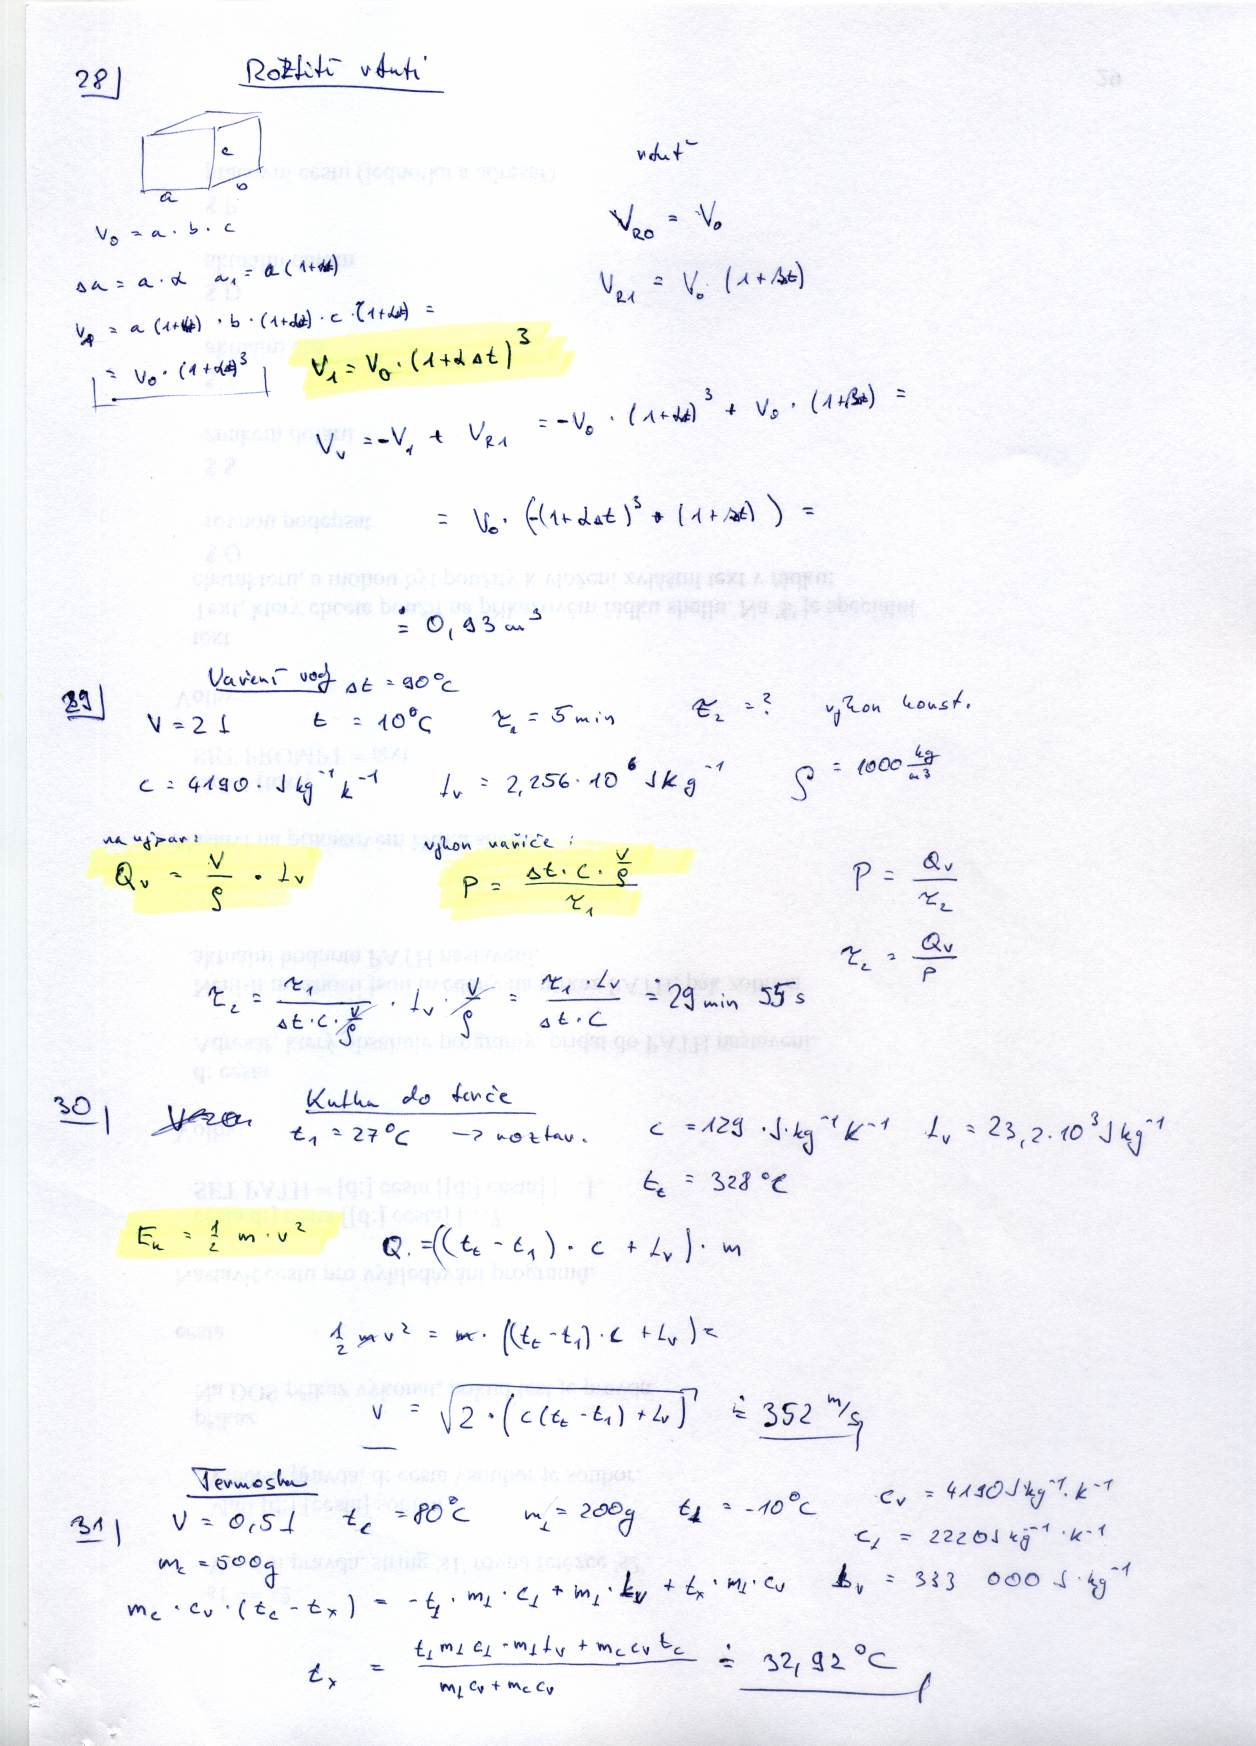 28)
Rozlití rtuti
c
a
b
rtuť
V₀ = a · b · c
V_R0 = V₀
Δa = a · α   a₁ = a(1+αt)
V_R1 = V₀ · (1+βt)
V₁ = a(1+αt) · b · (1+αt) · c · (1+αt) =
= V₀ · (1+αt)³
V₁ = V₀ · (1+αΔt)³
V_V = -V₁ + V_R1 = -V₀ · (1+αt)³ + V₀ · (1+βt) =
= V₀ · (-(1+αΔt)³ + (1+βt)) =
≐ 0,93 cm³
29)
Vaření vody Δt = 90°C
V = 2 l   t = 10°C   τ₁ = 5 min   τ₂ = ?   výkon konst.
c = 4190 · J kg⁻¹ K⁻¹   L_v = 2,256 · 10⁶ J kg⁻¹   ρ = 1000 kg/m³
na výpar:   výkon vařiče :
Q_v = V/ρ · L_v   P = (Δt · c · V/ρ)/τ₁   P = Q_v/τ₂
τ₂ = Q_v/P
τ₂ = τ₁/(Δt · c · V/ρ) · L_v · V/ρ = (τ₁ · L_v)/(Δt · c) ≐ 29 min 55 s
30)
Kulka do terče
t₁ = 27°C → roztav.   c = 129 · J · kg⁻¹ K⁻¹   L_v = 23,2 · 10³ J kg⁻¹
t_t = 328°C
E_k = 1/2 m · v²   Q = ((t_t - t₁) · c + L_v) · m
1/2 m v² = m · ((t_t - t₁) · c + L_v) =
v = √(2 · (c(t_t - t₁) + L_v)) ≐ 352 m/s
Termoska
31)
V = 0,5 l   t_c = 80°C   m_L = 200g   t_L = -10°C   c_v = 4190 J kg⁻¹ · K⁻¹
c_L = 2220 J kg⁻¹ · K⁻¹
m_c = 500g
L_v = 333 000 J · kg⁻¹
m_c · c_v · (t_c - t_x) = -t_L · m_L · c_L + m_L · L_v + t_x · m_L · c_v
t_x = (t_L m_L c_L - m_L L_v + m_c c_v t_c)/(m_L c_v + m_c c_v) ≐ 32,92°C